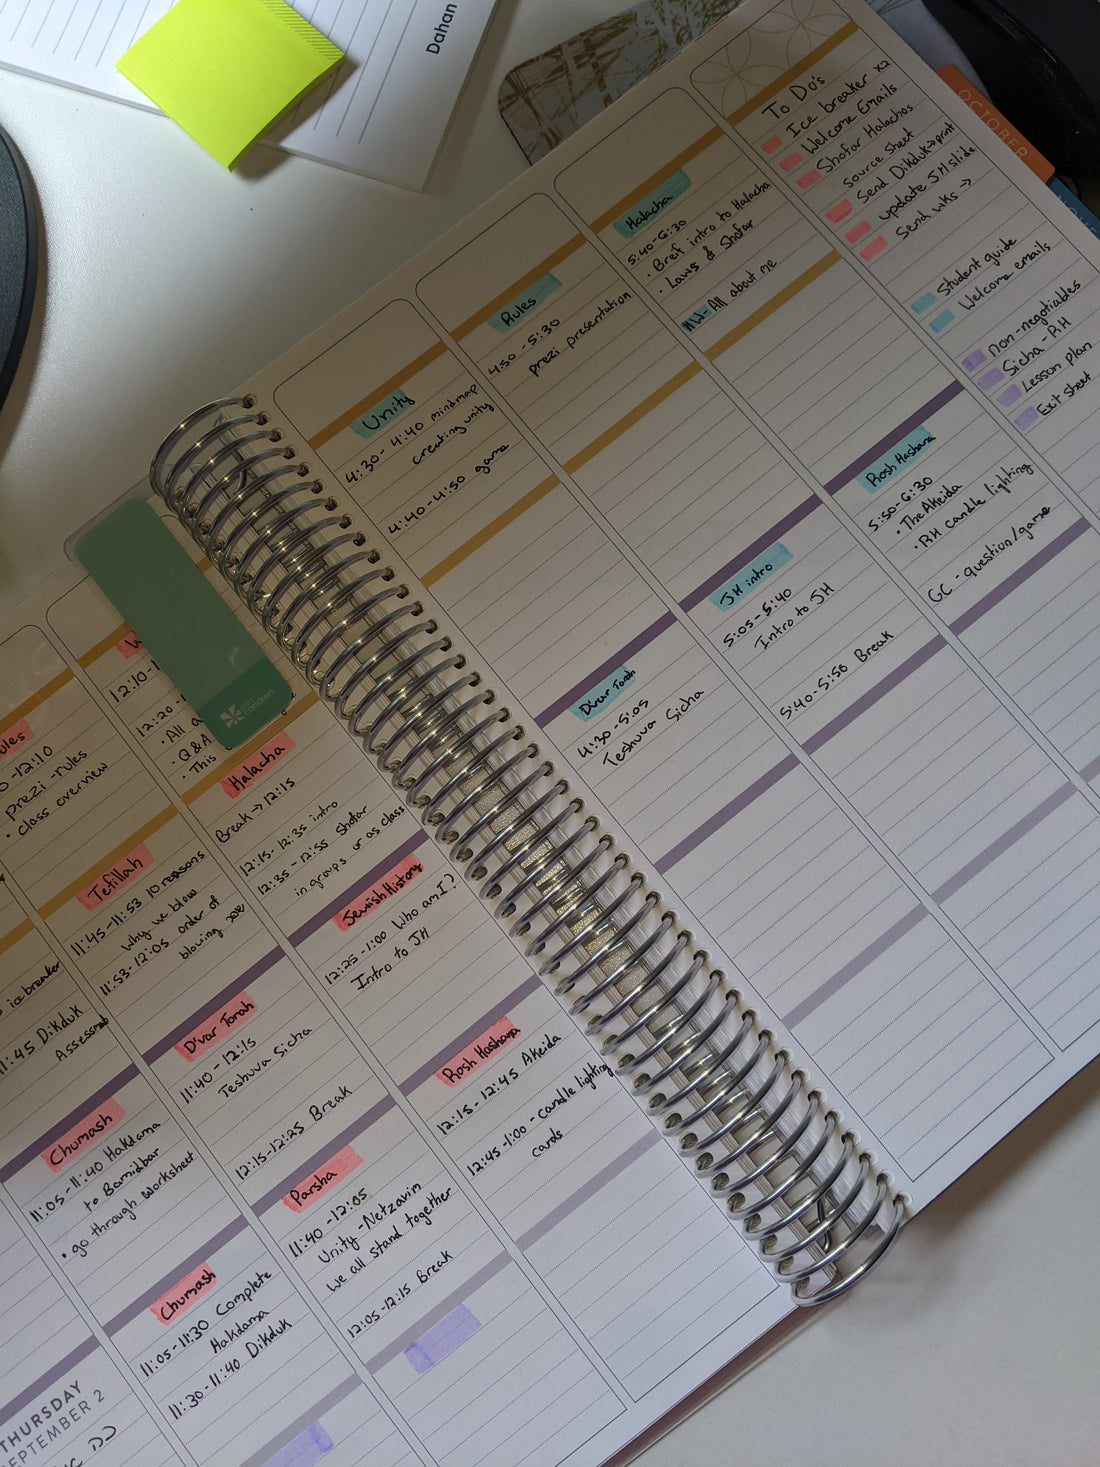 Dahan
OCTOBER
To Do's
Ice breaker x2
Welcome Emails
Shofar Halachos
source sheet
Send Dikduk→print
update JH slide
Send wks →
Student guide
Welcome emails
non-negotiables
Sicha - RH
Lesson plan
Exit sheet
Unity
4:30 - 4:40 mindmap
creating unity
4:40-4:50 game
Rules
4:50 - 5:30
prezi presentation
Halacha
5:40-6:30
• Breif intro to Halacha
• Laws of Shofar
HW-All about me
D'var Torah
4:30-5:05
Teshuva Sicha
JH intro
5:05-5:40
Intro to JH
5:40-5:50 Break
Rosh Hashana
5:50-6:30
• The Akeida
• RH candle lighting
GC - question/game
ules
-12:10
prezi -rules
• class overview
W
12:10-1
12:20-
• All a
• Q&A
• This
condren
ice breaker
11:45 Dikduk
Assessment
Tefillah
11:45-11:53 10 reasons
why we blow
11:53-12:05 order of
blowing
Halacha
Break → 12:15
12:15-12:35 intro
12:35-12:55 Shofar
in groups or as class
Chumash
11:05-11:40 Hakdama
to Bamidbar
• go through worksheet
D'var Torah
11:40 - 12:15
Teshuva Sicha
12:15-12:25 Break
Jewish History
12:25-1:00 Who am I?
Intro to JH
Chumash
11:05-11:30 Complete
Hakdama
11:30-11:40 Dikduk
Parsha
11:40 -12:05
Unity -Netzavim
we all stand together
12:05-12:15 Break
Rosh Hashana
12:15-12:45 Akeida
12:45-1:00 - candle lighting
cards
THURSDAY
SEPTEMBER 2